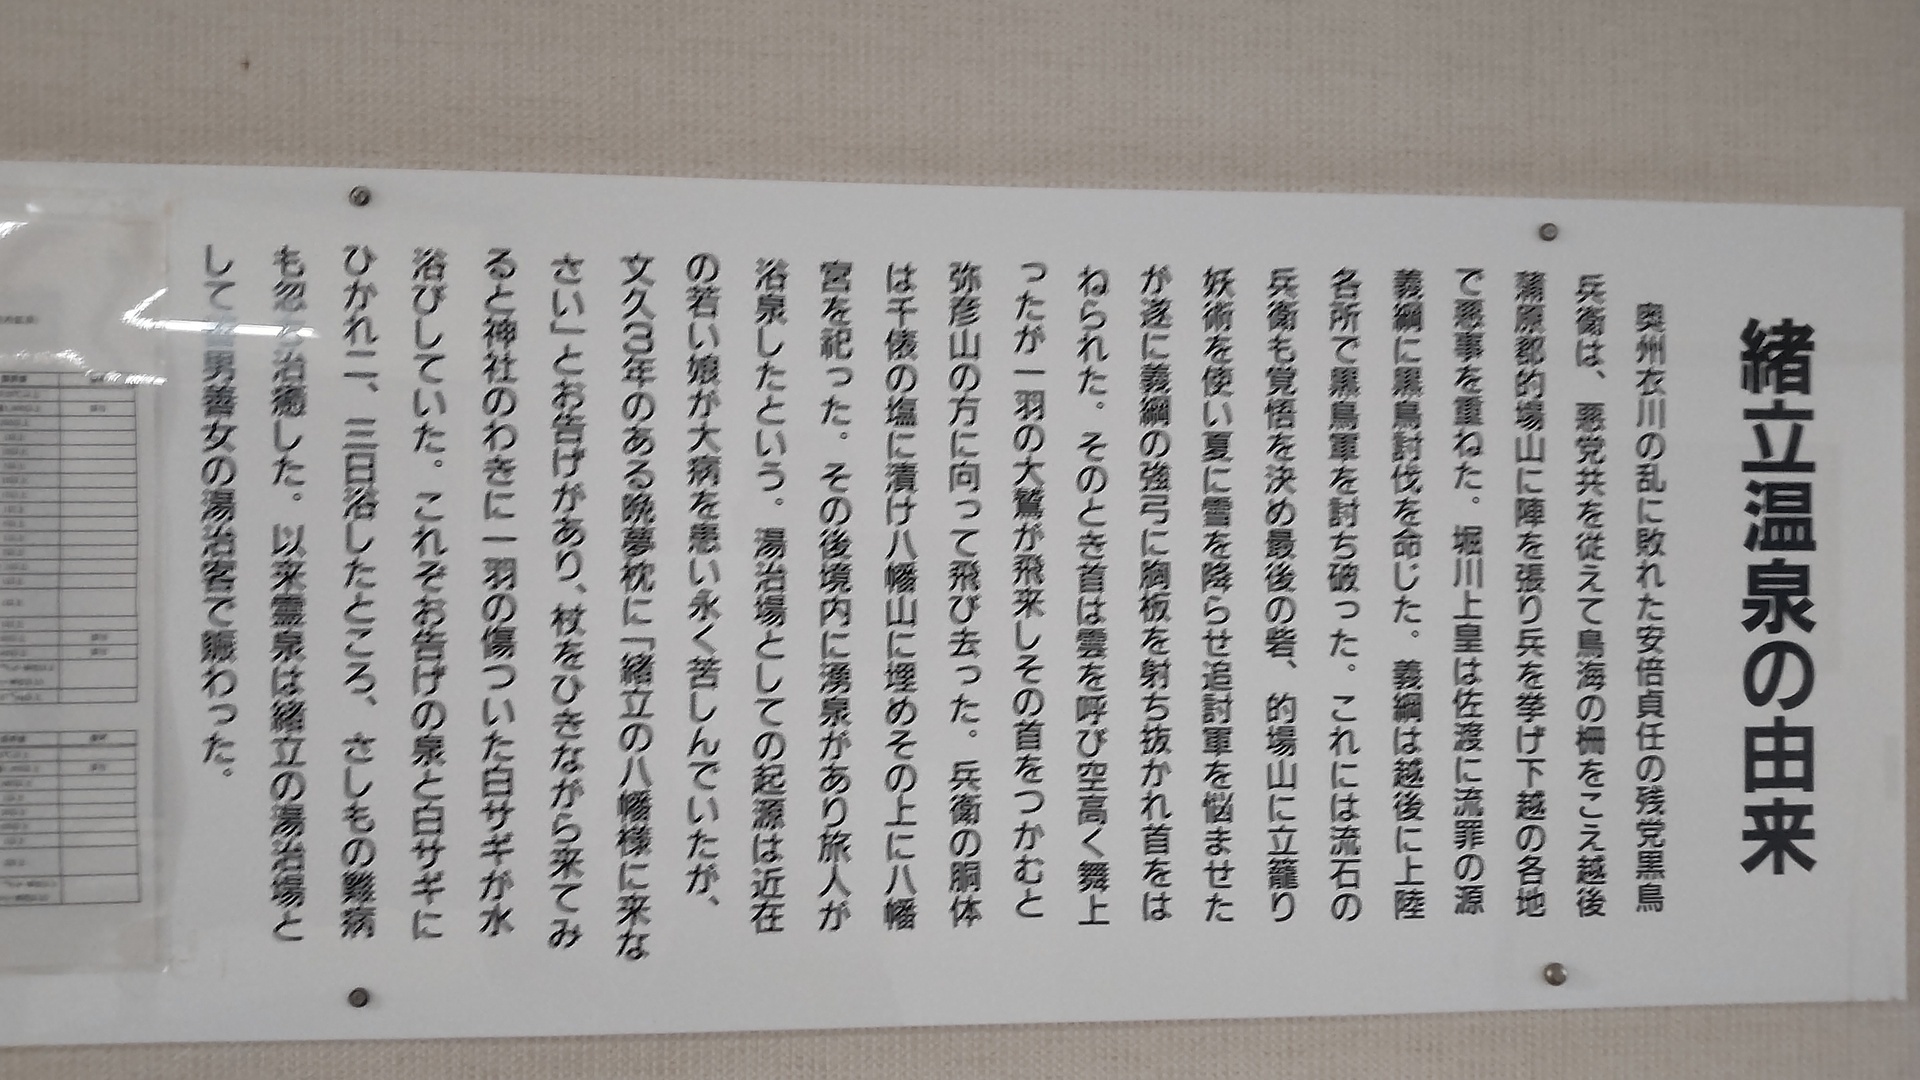 緒立温泉の由来
奥州衣川の乱に敗れた安倍貞任の残党黒鳥
兵衛は、悪党共を従えて鳥海の柵をこえ越後
蒲原郡的場山に陣を張り兵を挙げ下越の各地
で悪事を重ねた。堀川上皇は佐渡に流罪の源
義綱に黒鳥討伐を命じた。義綱は越後に上陸
各所で黒鳥軍を討ち破った。これには流石の
兵衛も覚悟を決め最後の砦、的場山に立籠り
妖術を使い夏に雪を降らせ追討軍を悩ませた
が遂に義綱の強弓に胸板を射ち抜かれ首をは
ねられた。そのとき首は雲を呼び空高く舞上
ったが一羽の大鷲が飛来しその首をつかむと
弥彦山の方に向って飛び去った。兵衛の胴体
は千俵の塩に漬け八幡山に埋めその上に八幡
宮を祀った。その後境内に湧泉があり旅人が
浴泉したという。湯治場としての起源は近在
の若い娘が大病を患い永く苦しんでいたが、
文久3年のある晩夢枕に「緒立の八幡様に来な
さい」とお告げがあり、杖をひきながら来てみ
ると神社のわきに一羽の傷ついた白サギが水
浴びしていた。これぞお告げの泉と白サギに
ひかれ二、三日浴したところ、さしもの難病
も忽ち治癒した。以来霊泉は緒立の湯治場と
して男善女の湯治客で賑わった。